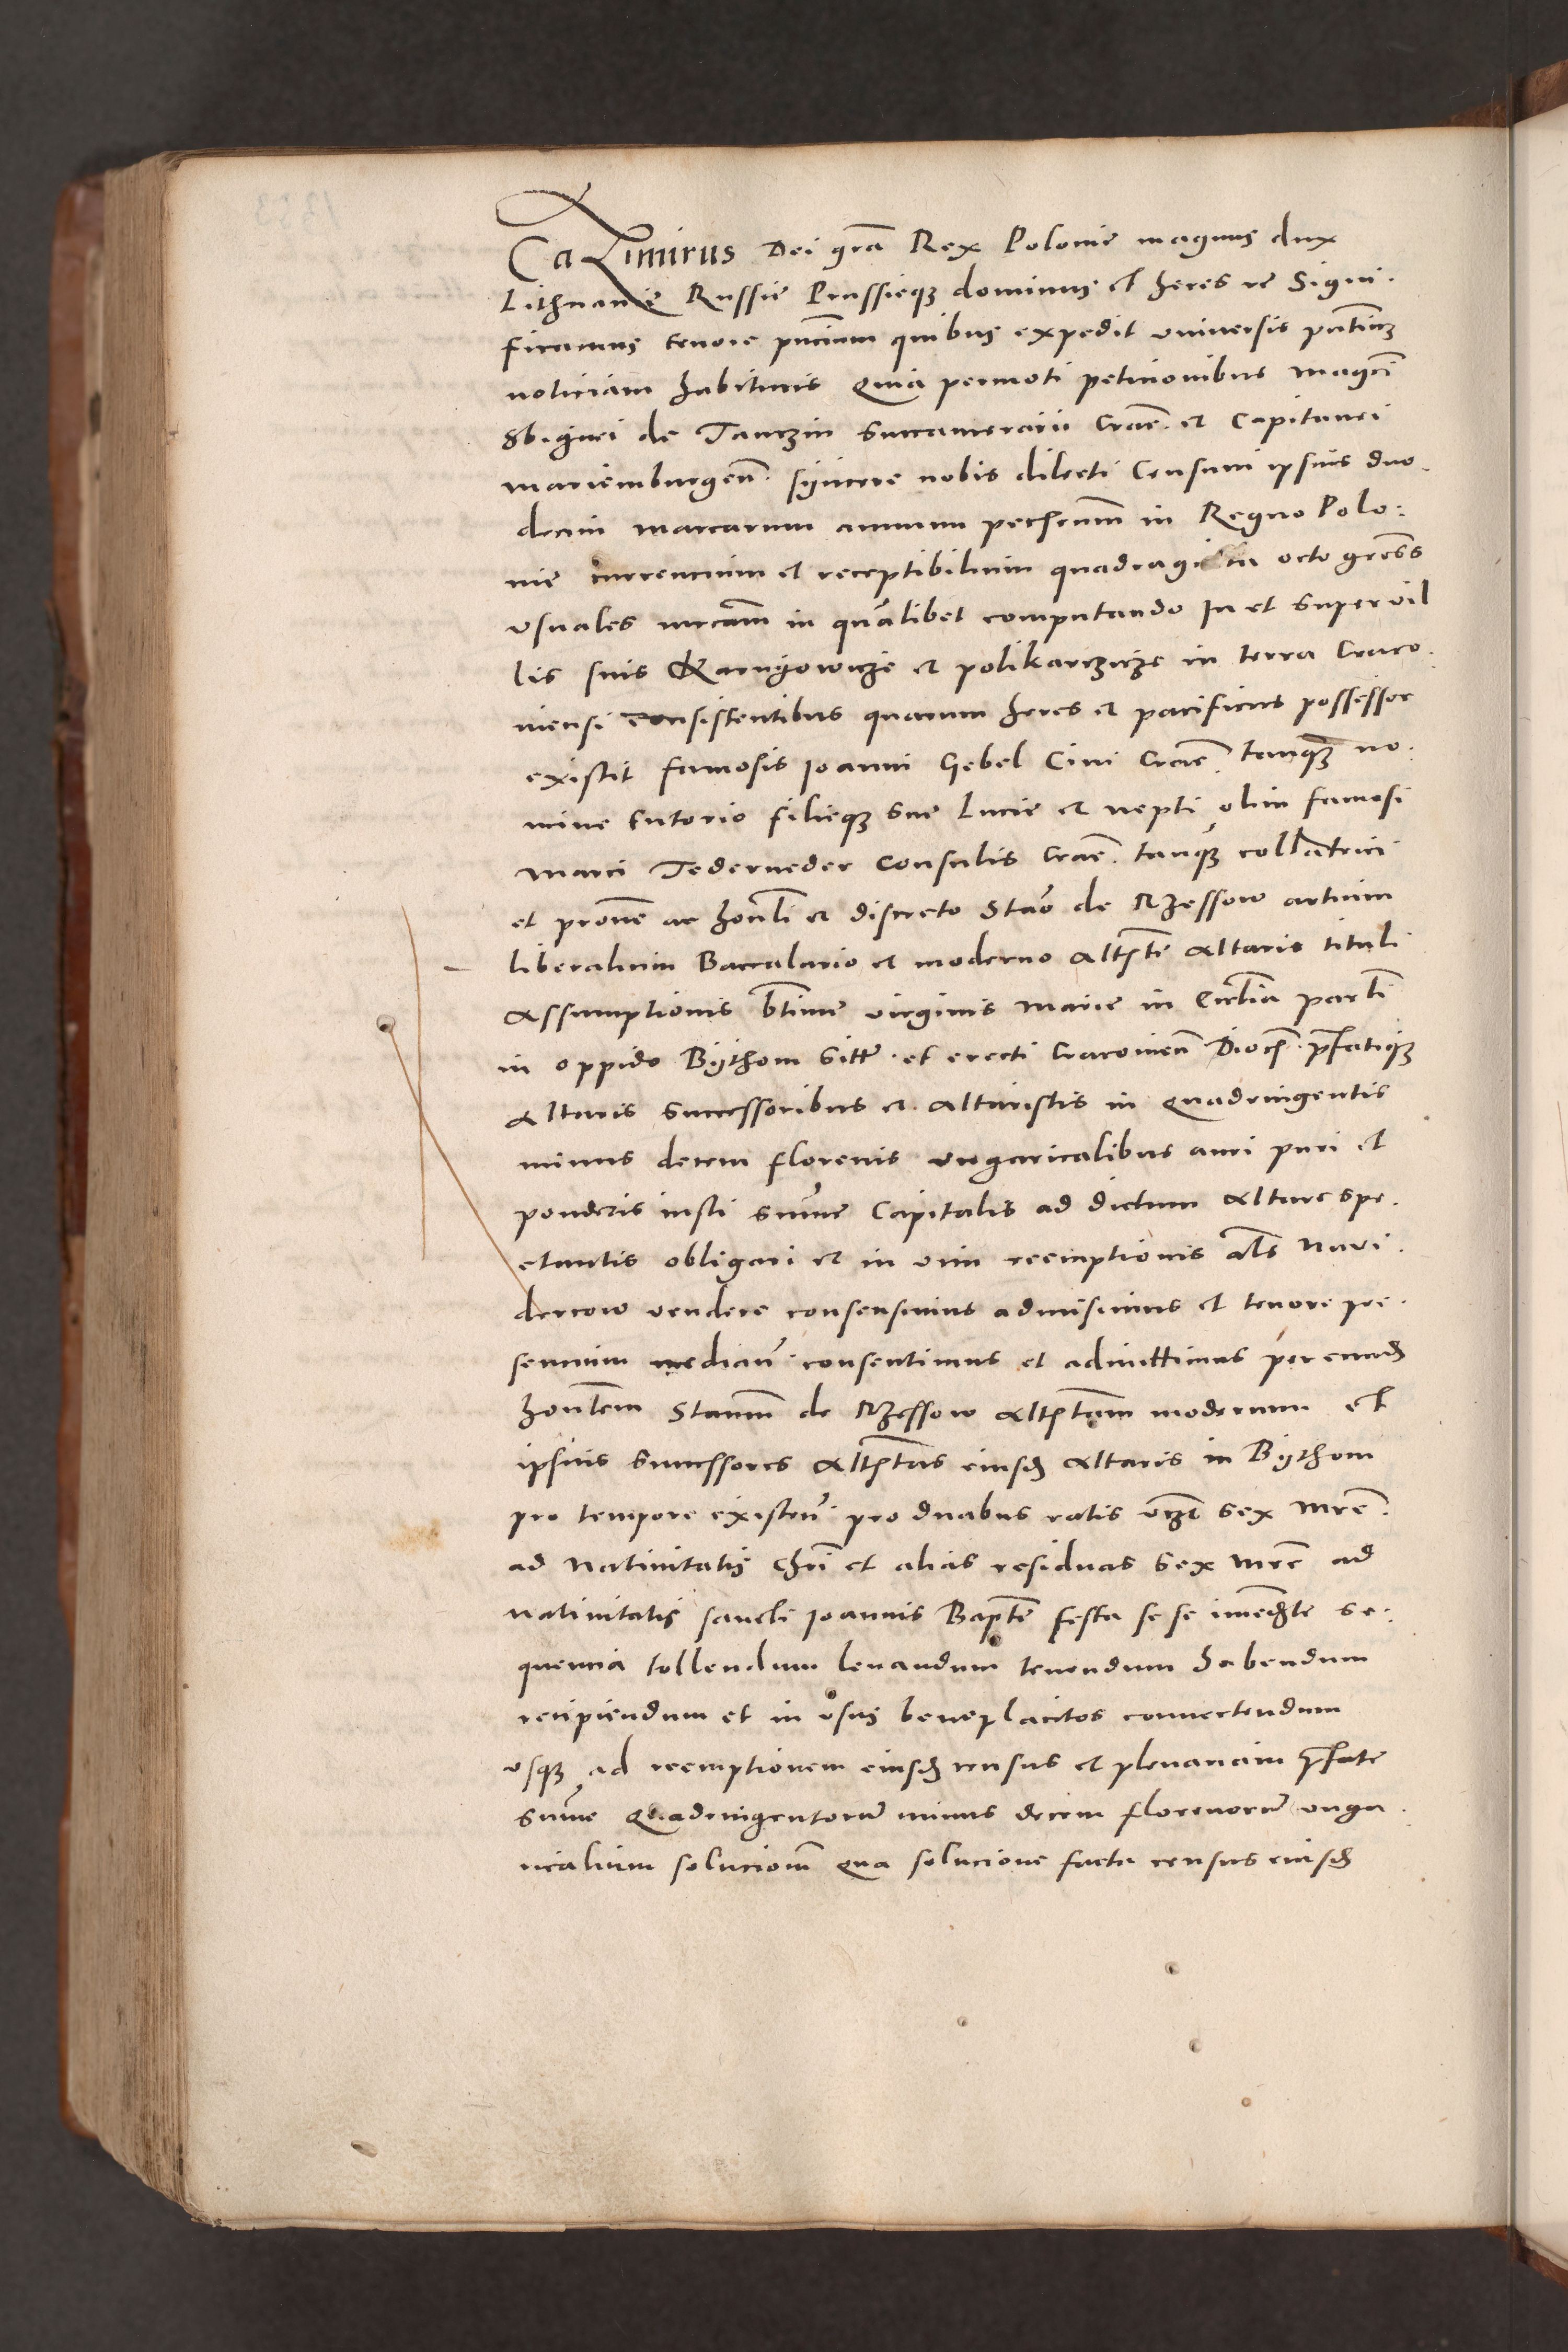 Cazimirus Dei gra͞ Rex Polonie magnus dux
Lithuanie Russie Prussieq₃ dominus et heres rc Signi⸱
ficamus tenore pn͞cium quibus expedit vniversis pn͞tium
noticiam habituris Quia permoti peticionibus Magci͞
Sbignei de Tanczin Succamerarii Crac͞. et Capitanei
mariemburgen͞. syncere nobis dilecti Censum ipsius duo⸱
decim marcarum annuum pecheum͞ in Regno Polo:
nie currencium et receptibilium quadraginta octo gross͞
vsuales mrcam͞ in qua͞libet computando In et super vil
lis suis Karnigowicze et polikarczicze in terra Craco⸱
uiensi consistentibus quarum heres et pacificus possessor
existit famosis Joanni Gebel Ciui Crac͞. tanq₃ no⸱
mine tutorio filieq₃ sue Lucie et nepti olim famosi
Marci Tederneder Consulis Crac͞. tanq₃ collatrici
et prouse͞ ac honli͞ et discreto Stao͞ de Rzessow artium
liberalium Baccalario et moderno Altrste͞ Altaris tituli
Assumptionis bt͞ime virginis Marie in Ecc͞lia parli͞
in oppido Bythom sitt͞. et erecti Cracouien͞ Dioc͞. pfatiq₃
Altaris successoribus et altaristis in Quadringentis
minus decem florenis vngaricalibus auri puri et
ponderis iusti sum͞me Capitalis ad dictum Altare spe⸱
ctantis obligari et in vim reemptionis al͞s Nawi⸱
dercow vendere consensimus admisimus et tenore pre⸱
sencium median͞. consentimus et admittimus per eund͞
honlem͞ Stanum͞ de Rzessow Altrstam͞ modernum et
ipsius successores Altrstas͞ eiusd͞ Altaris in Bythom
pro tempore existen͞. pro duabus ratis vcz͞t sex mrc͞.
ad Natiuitatis Chri͞ et alias residuas sex mrc͞ ad
natiuitatis sancti Joannis Bapte͞ festa se se imedi͞ate se⸱
quencia tollendum leuandum tenendum habendum
recipiendum et in vsus beneplacitos conuertendum
vsq₃ ad reemptionem eiusd͞ census et plenariam pfate
sum͞me Quadringentorum minus decem florenorum vnga⸱
ricalium soluciom͞ Qua solucione facta census eiusd͞